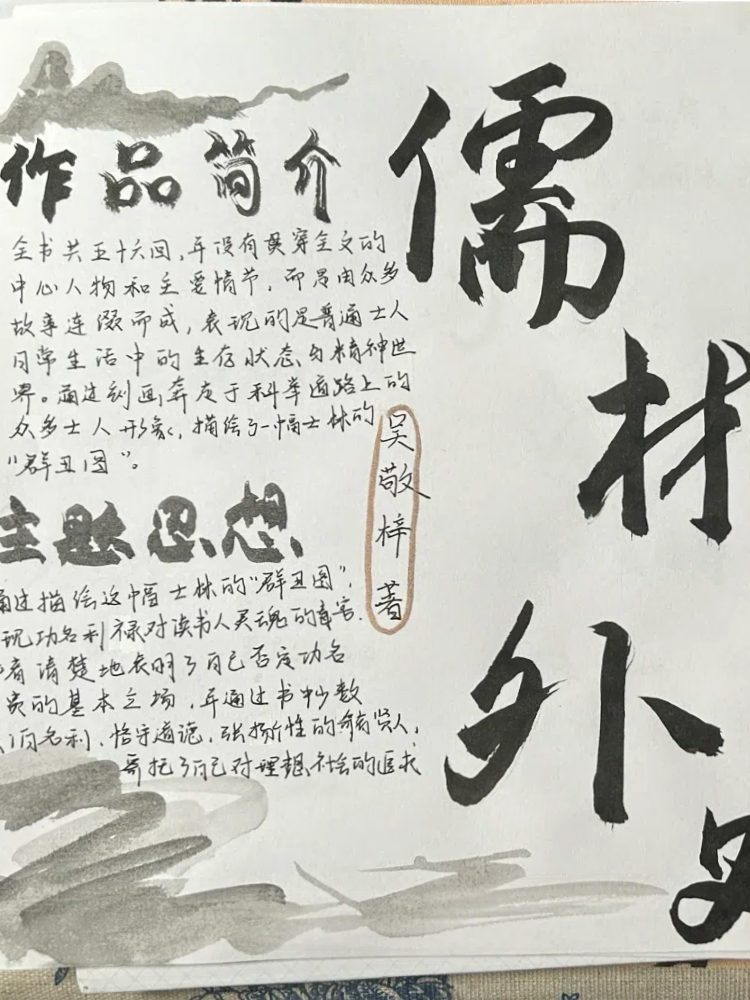 儒
林
外
史
吴敬梓著
作品简介
全书共五十六回,并没有贯穿全文的
中心人物和主要情节,而是由众多
故事连缀而成,表现的是普通士人
日常生活中的生存状态与精神世
界。通过刻画奔走于科举道路上的
众多士人形象,描绘了一幅士林的
“群丑图”。
主题思想
通过描绘这幅士林的“群丑图”,
现功名利禄对读书人灵魂的毒害.
者清楚地表明了自己否定功名
贵的基本立场,并通过书中少数
名利、恪守道德,张扬个性的贤人,
寄托了自己对理想社会的追求